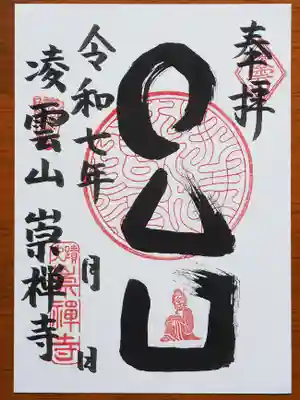 奉拝
○△□
令和七年 月 日
凌雲山 崇禅寺
崇禪寺